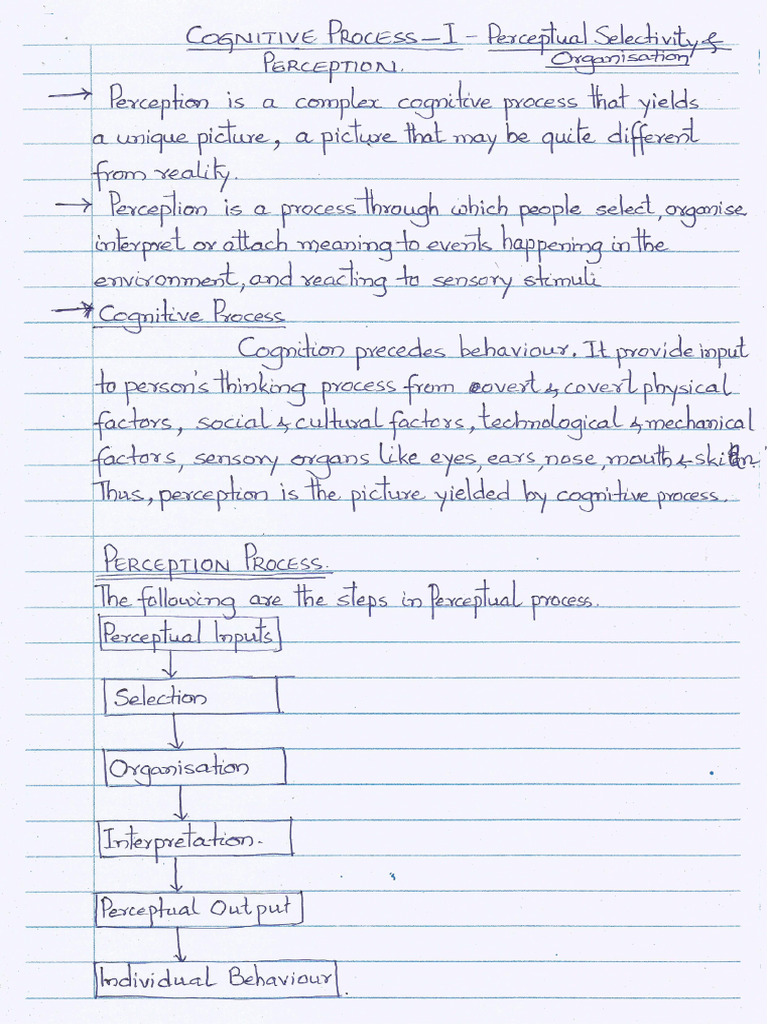 COGNITIVE PROCESS – I – Perceptual Selectivity &
Organisation
PERCEPTION.
→ Perception is a complex cognitive process that yields
a unique picture, a picture that may be quite different
from reality.
→ Perception is a process through which people select, organise
interpret or attach meaning to events happening in the
environment, and reacting to sensory stimuli
→ Cognitive Process
Cognition precedes behaviour. It provide input
to person's thinking process from overt & covert physical
factors, social & cultural factors, technological & mechanical
factors, sensory organs like eyes, ears, nose, mouth & skin.
Thus, perception is the picture yielded by cognitive process.
PERCEPTION PROCESS.
The following are the steps in Perceptual process.
Perceptual Inputs
Selection
Organisation
Interpretation.
Perceptual Output
Individual Behaviour.